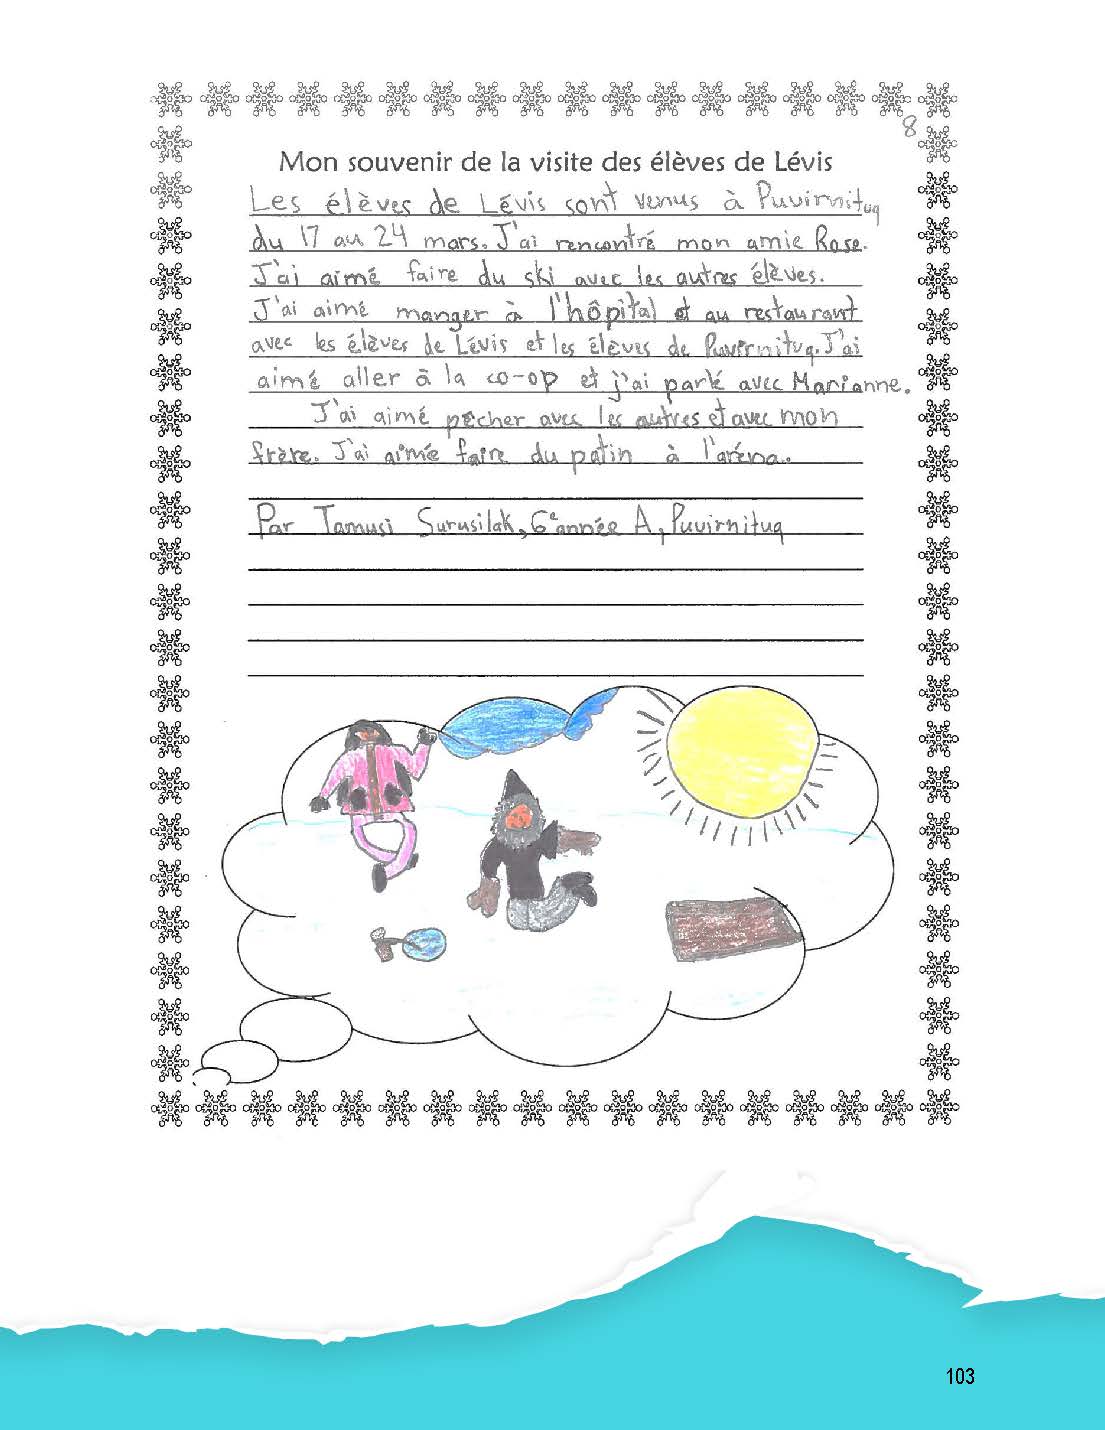 8
Mon souvenir de la visite des élèves de Lévis
Les élèves de Lévis sont venus à Puvirnituq
du 17 au 24 mars. J'ai rencontré mon amie Rose.
J'ai aimé faire du ski avec les autres élèves.
J'ai aimé manger à l'hôpital et au restaurant
avec les élèves de Lévis et les élèves de Puvirnituq. J'ai
aimé aller à la co-op et j'ai parlé avec Marianne.
J'ai aimé pêcher avec les autres et avec mon
frère. J'ai aimé faire du patin à l'aréna.
Par Tamusi Surusilak, 6e année A, Puvirnituq
103